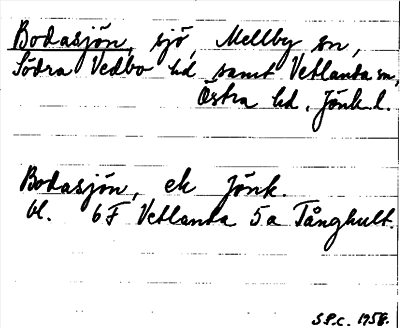 Bodasjön, sjö, Mellby sn,
Södra Vedbo hd samt Vetlanda sn,
Östra hd, Jönk. l.
Bodasjön, ek Jönk.
bl. 6F Vetlanda 5a Tånghult.
S.P.C. 1958.